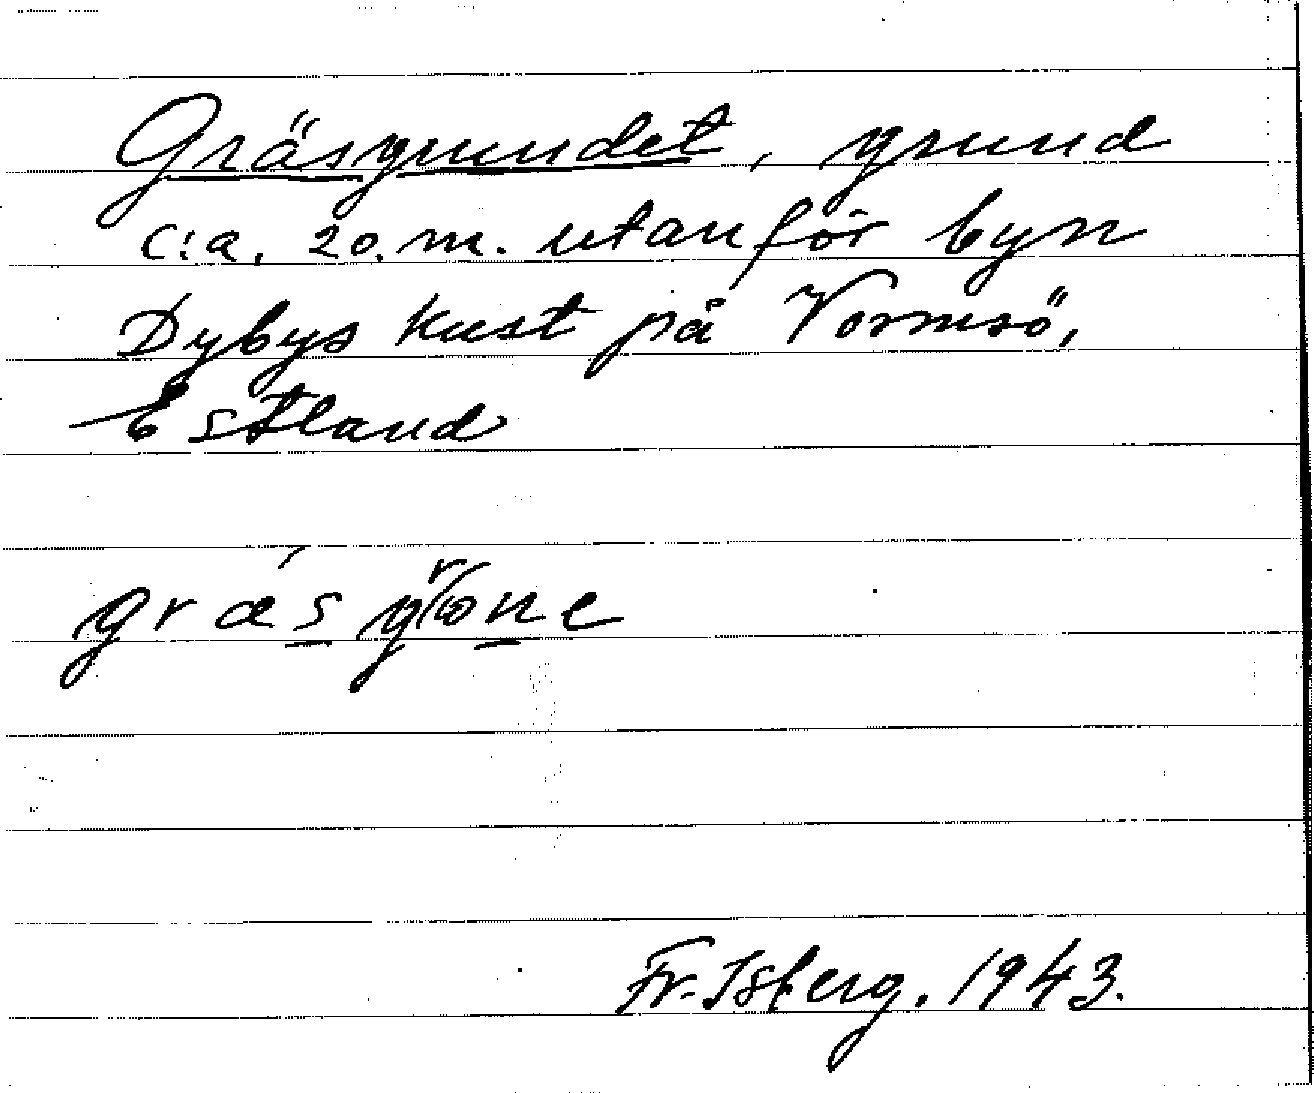 Gräsgrundet, grund
c:a. 20. m. utanför byn
Dybys kust på Vormsö,
Estland
Fr. Isberg. 1943.